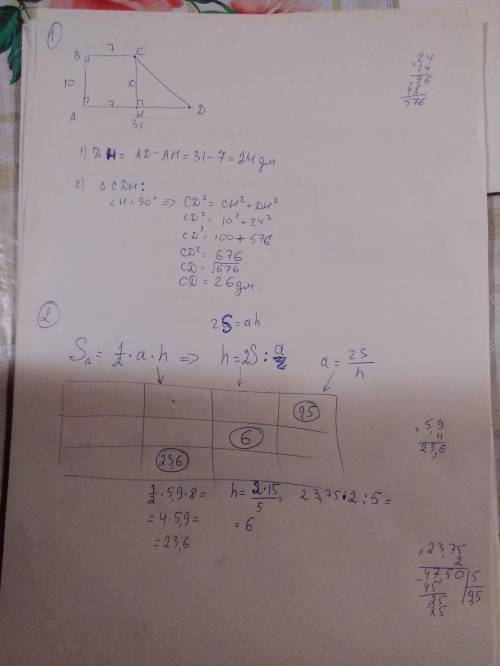 1
B 7 C
10 10
A 7 H D
31
24
× 24
96
48
576
1) DH = AD - AH = 31 - 7 = 24 дм
2) △ CDH:
∠H = 90° => CD² = CH² + DH²
CD² = 10² + 24²
CD² = 100 + 576
CD² = 676
CD = √676
CD = 26 дм.
2
2S = ah
S△ = 1/2 · a · h => h = 2S : a
a = 2S/h
9,5
6
23,6
1/2 · 5,9 · 8 =
= 4 · 5,9 =
= 23,6
h = 2·15/5 =
= 6
23,75 · 2 : 5 =
× 5,9
4
23,6
× 23,75
2
- 47,50 | 5
45 | 9,5
25
25